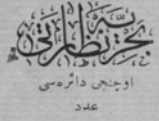 بحریه نظارتی
اوچنجی دائره‌سی
عدد